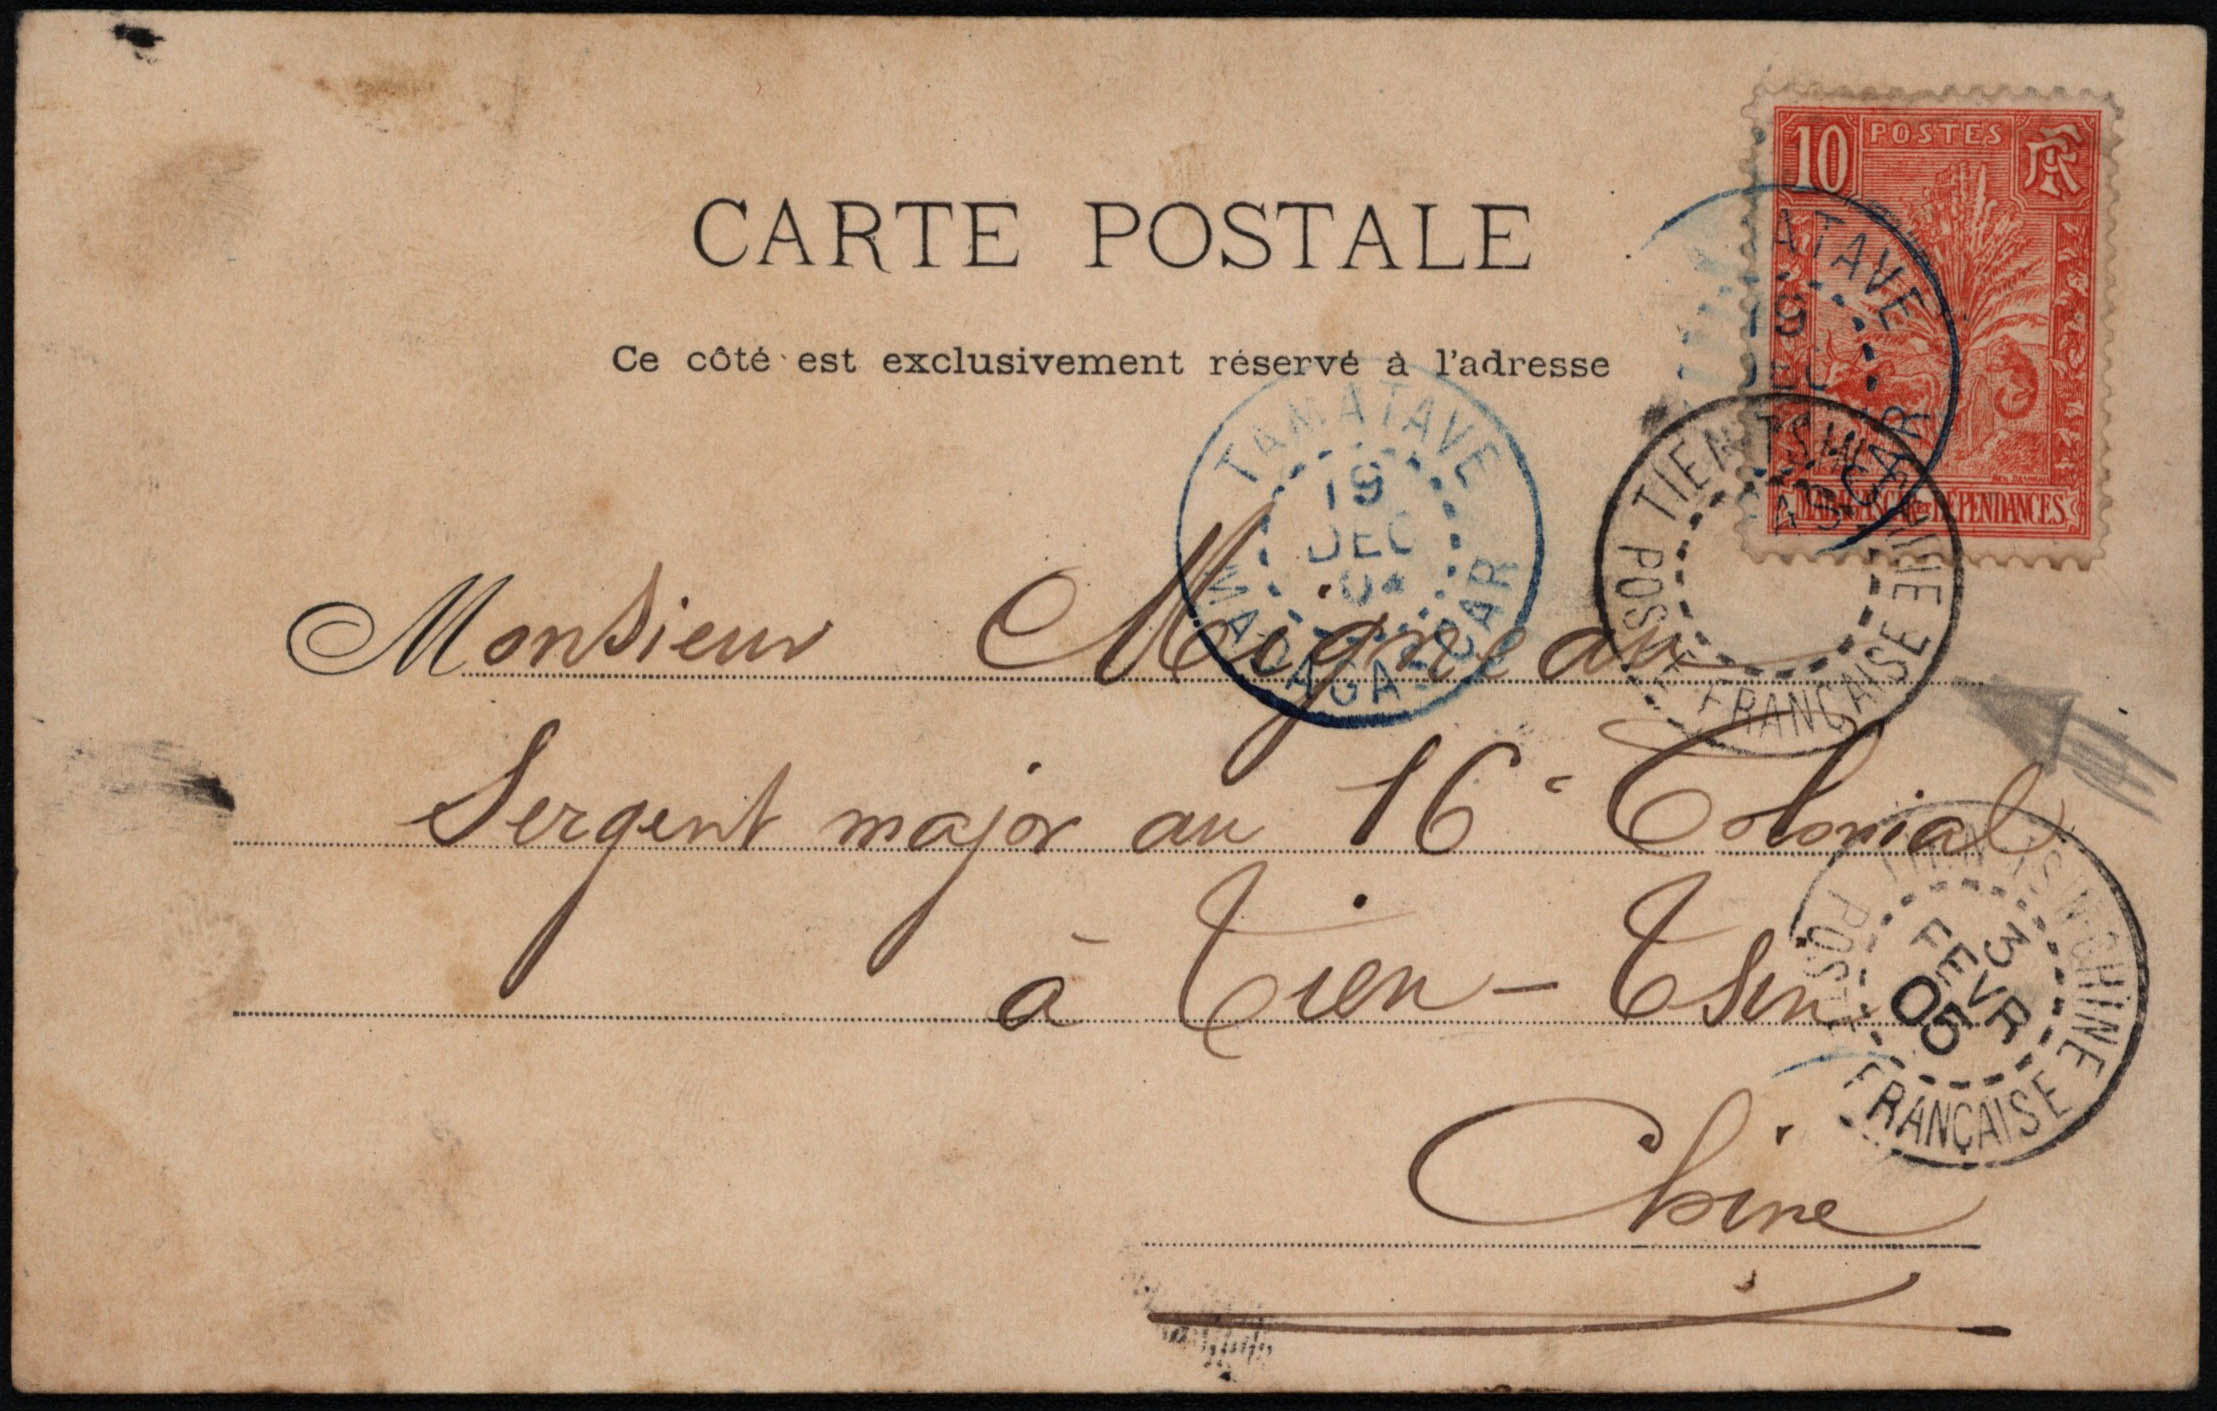 CARTE POSTALE
Ce côté est exclusivement réservé à l'adresse
10 POSTES RF
MADAGASCAR ET DÉPENDANCES
TAMATAVE
19
DEC
MADAGASCAR
TAMATAVE
19
DEC
04
MADAGASCAR
TIEN-TSIN CHINE
POSTE FRANÇAISE
Monsieur Migneau
Sergent major au 16e Colonial
à Tien-Tsin
Chine
TIEN-TSIN CHINE
3
FEVR
05
POSTE FRANÇAISE